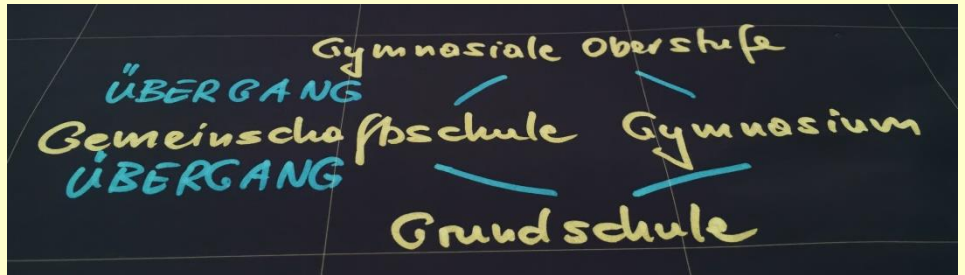 Gymnasiale Oberstufe
ÜBERGANG
Gemeinschaftsschule Gymnasium
ÜBERGANG
Grundschule